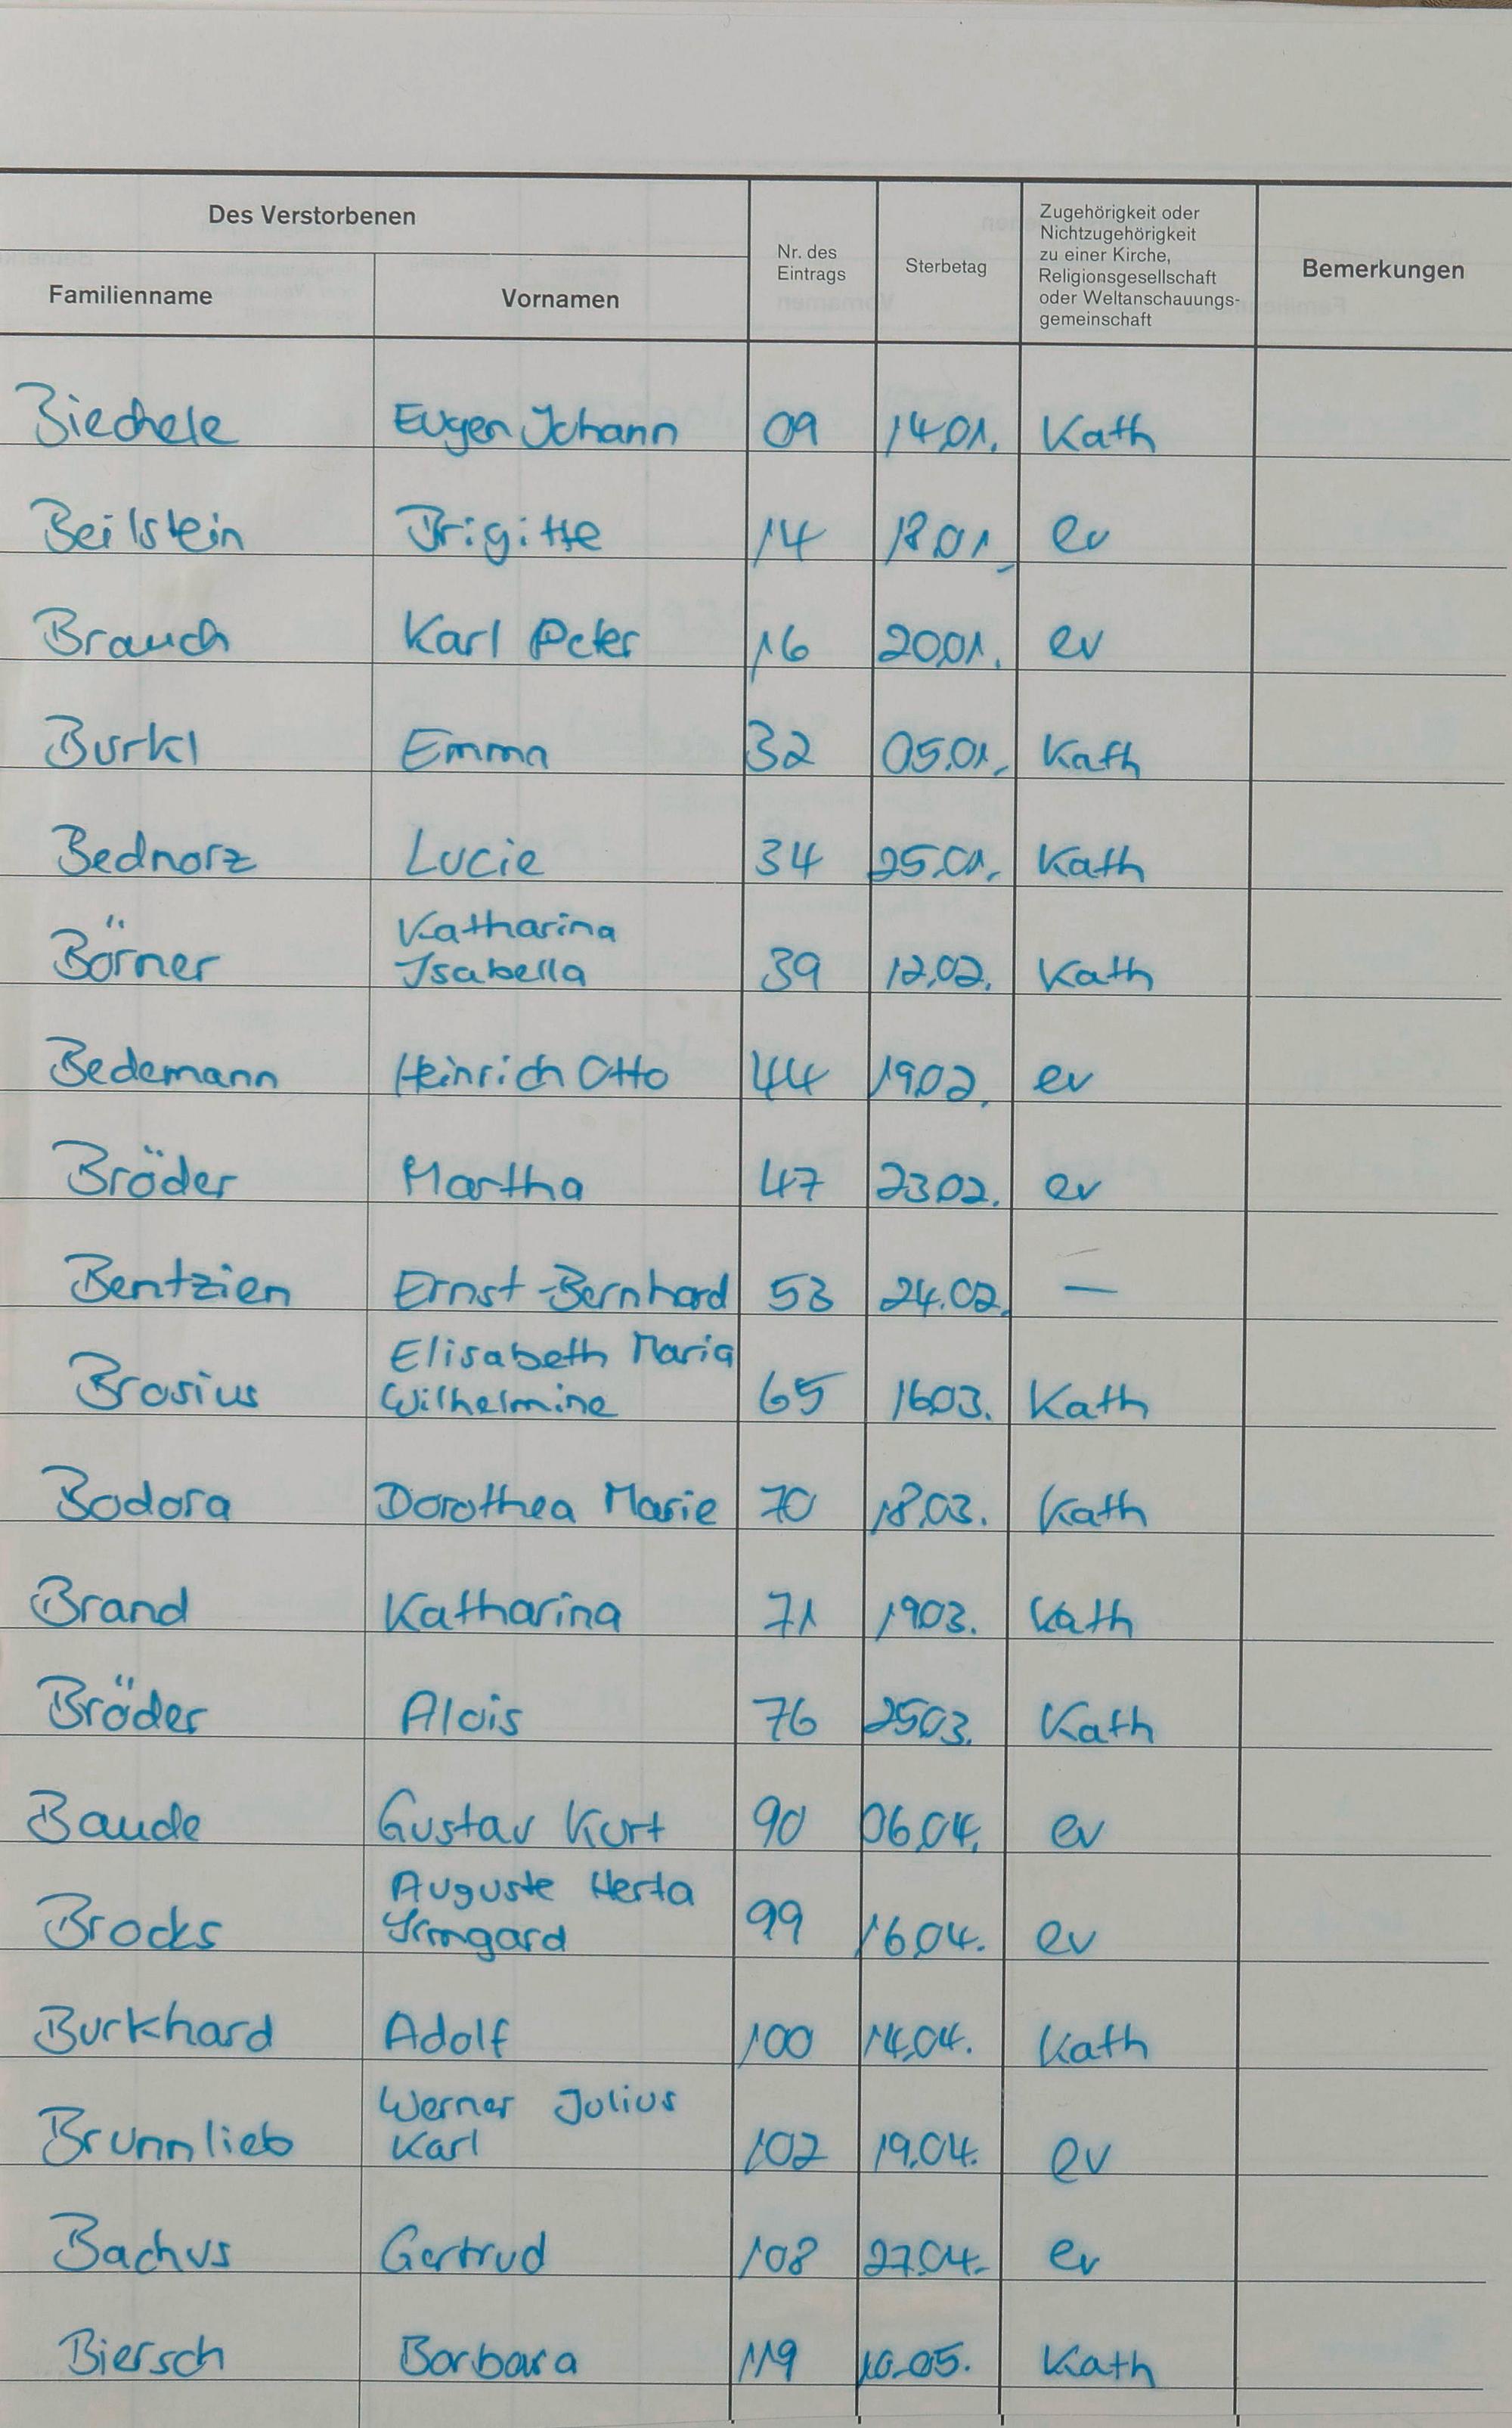 Des Verstorbenen
Familienname
Vornamen
Nr. des
Eintrags
Sterbetag
Zugehörigkeit oder
Nichtzugehörigkeit
zu einer Kirche,
Religionsgesellschaft
oder Weltanschauungs-
gemeinschaft
Bemerkungen
Biechele Eugen Johann 09 14.01. Kath
Beilstein Brigitte 14 18.01. ev
Brauch Karl Peter 16 20.01. ev
Burkl Emma 32 05.01. Kath
Bednorz Lucie 34 25.01. Kath
Katharina
Börner Isabella 39 12.02. Kath
Bedemann Heinrich Otto 44 19.02. ev
Bröder Martha 47 23.02. ev
Bentzien Ernst-Bernhard 53 24.02. —
Elisabeth Maria
Brosius Wilhelmine 65 16.03. Kath
Bodora Dorothea Marie 70 18.03. Kath
Brand Katharina 71 19.03. Kath
Bröder Alois 76 25.03. Kath
Baude Gustav Kurt 90 06.04. ev
Auguste Herta
Brocks Irmgard 99 16.04. ev
Burkhard Adolf 100 14.04. Kath
Werner Julius
Brunnlieb Karl 102 19.04. ev
Bachus Gertrud 108 27.04. ev
Biersch Barbara 119 10.05. Kath